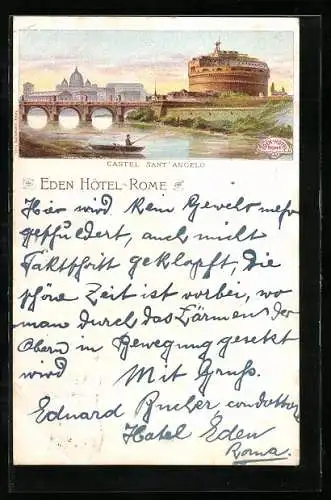 CASTEL SANT' ANGELO
EDEN HÔTEL-ROME
Hier wird kein Gewehr mehr
geschuldert, auch nicht
Taktschritt geklopft, die
schöne Zeit ist vorbei, wo
man durch das Lärmen der
Obern in Bewegung gesetzt
wird Mit Gruss.
Eduard Bucher
Hotel Eden
Roma.